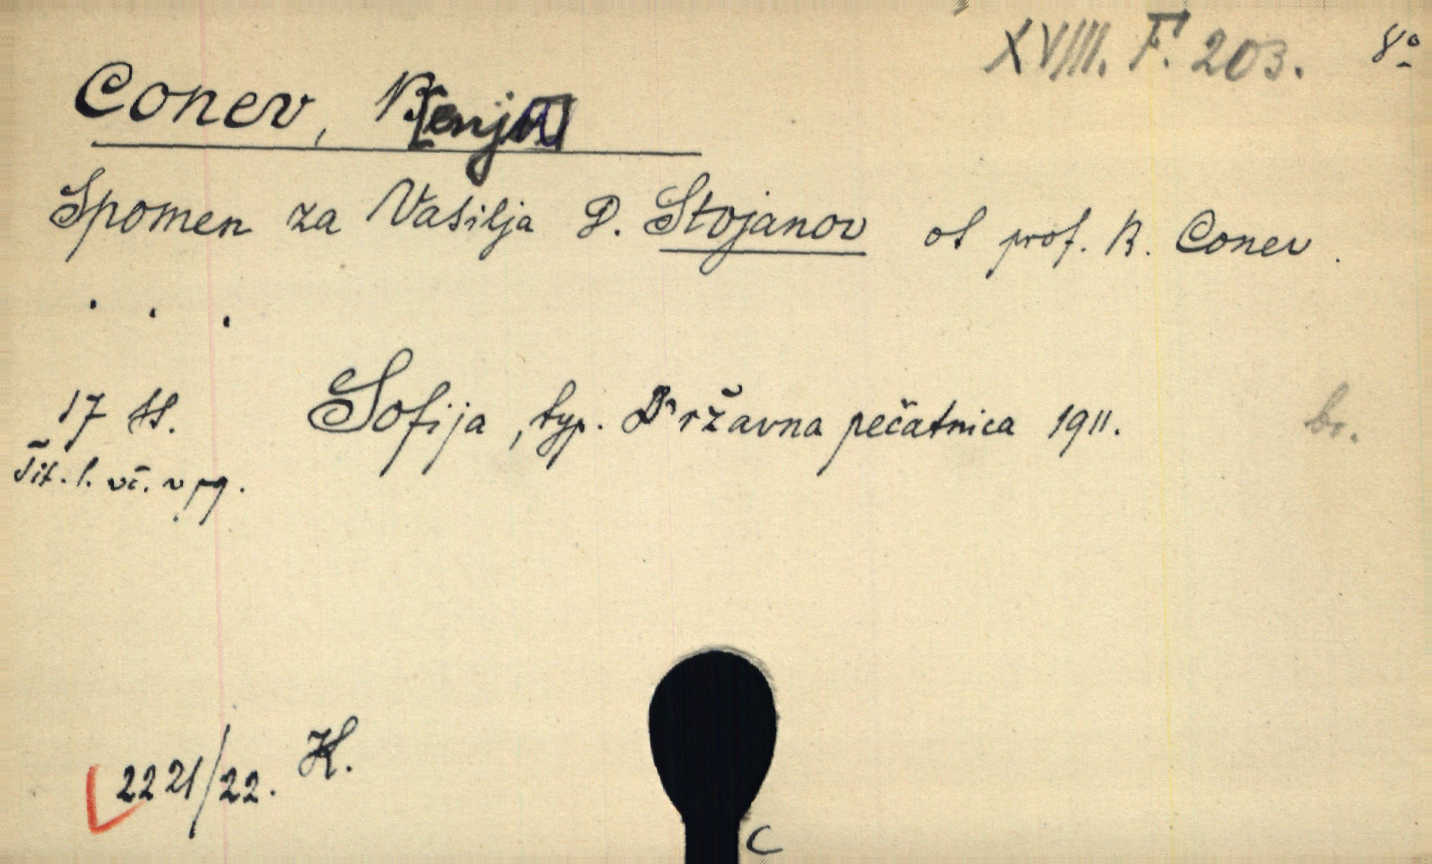 XVIII. F. 203. 8°
Conev, B[enjo]
Spomen za Vasilja D. Stojanov ot prof. B. Conev.
. . .
17 st. Sofija, typ. Dᵃržavna pečatnica 1911. br.
Tit. l. vč. v pg.
2221/22. K.
C